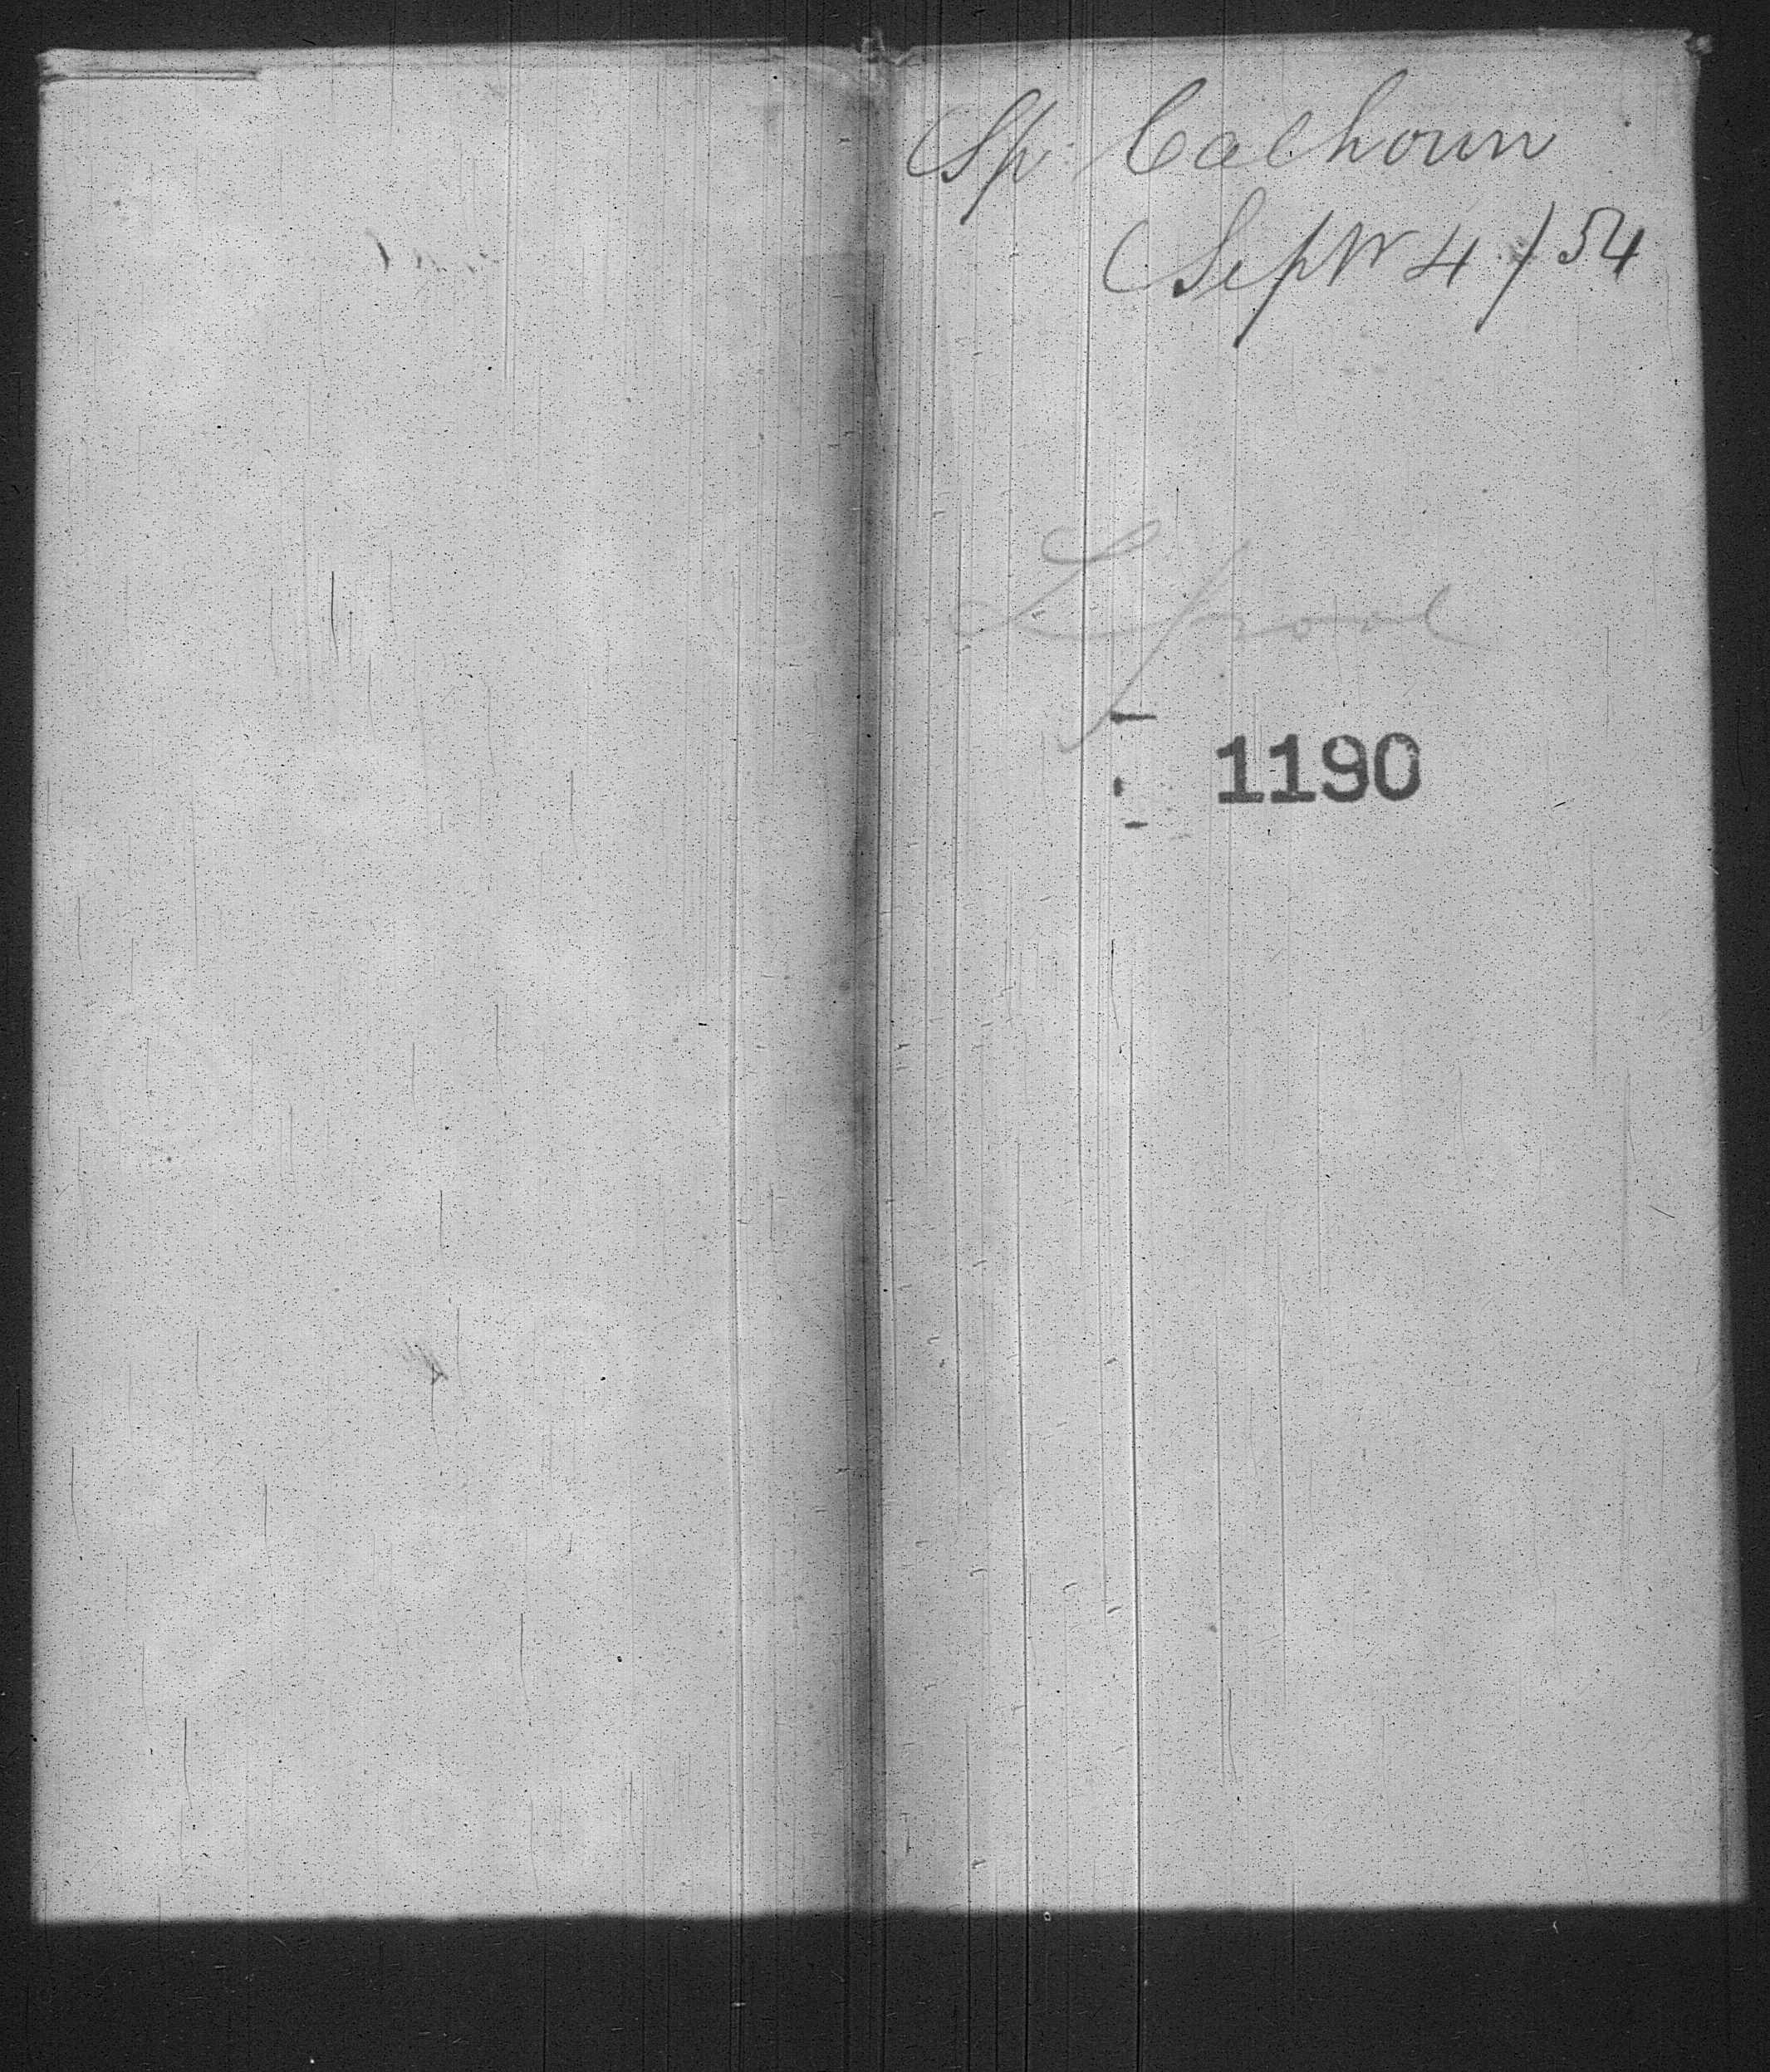 Sp. Calhoun
Septr 4 / 54
L.pool
1190